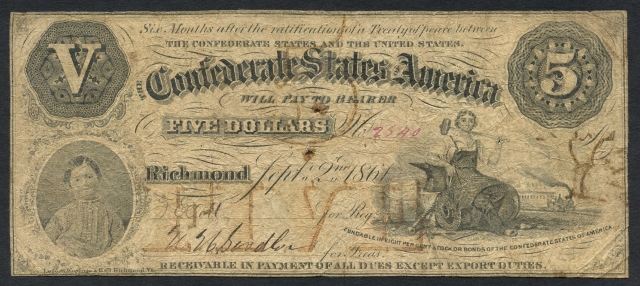 Six Months after the ratification of a Treaty of peace between
THE CONFEDERATE STATES AND THE UNITED STATES.
V
THE Confederate States of America
5
WILL PAY TO BEARER
FIVE DOLLARS No 2540
Richmond Sept. 2nd 1861
for Reg.
FUNDABLE IN EIGHT PER CENT STOCK OR BONDS OF THE CONFEDERATE STATES OF AMERICA
for Treas.
RECEIVABLE IN PAYMENT OF ALL DUES EXCEPT EXPORT DUTIES.
Richmond, Va.